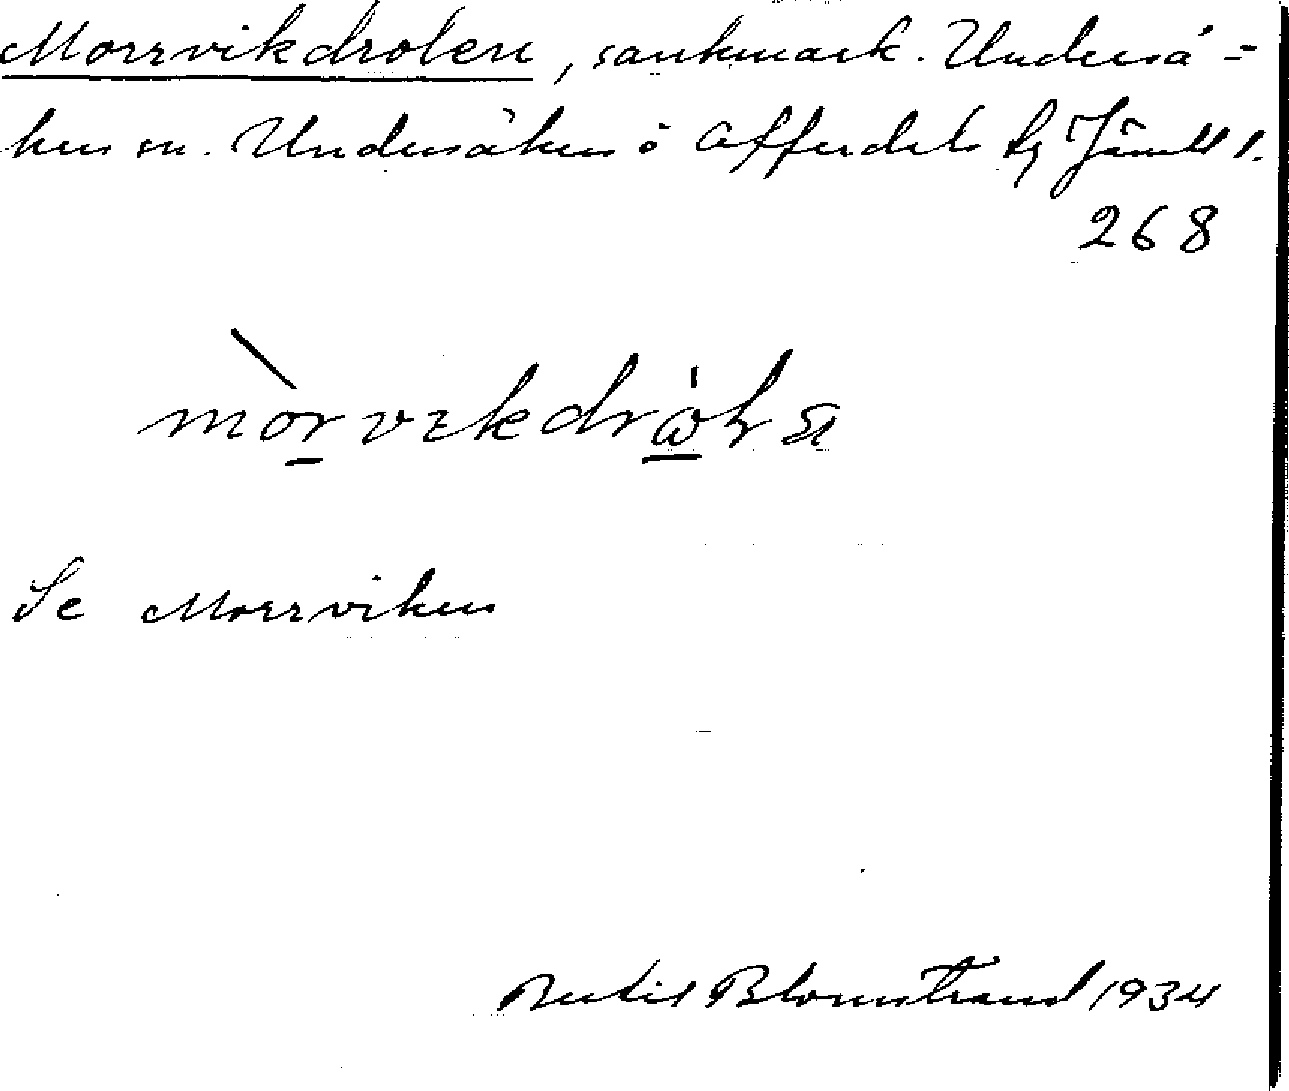 Morrvikdrolen, sankmark. Underså=
kers sn. Undersåkers o Offerdals tg Jämtl l.
268
Se Morrviken
Bertil Blomstrand 1934